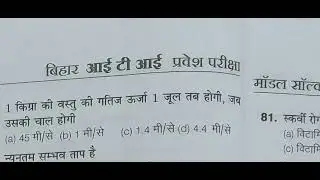 बिहार आई टी आई प्रवेश परीक्षा
1 किग्रा की वस्तु की गतिज ऊर्जा 1 जूल तब होगी, जब
उसकी चाल होगी
(a) 45 मी/से (b) 1 मी/से (c) 1.4 मी/से (d) 4.4 मी/से
न्यूनतम सम्भव ताप है
मॉडल सॉल्व
81. स्कर्वी रोग
(a) विटामि
(c) विटामि